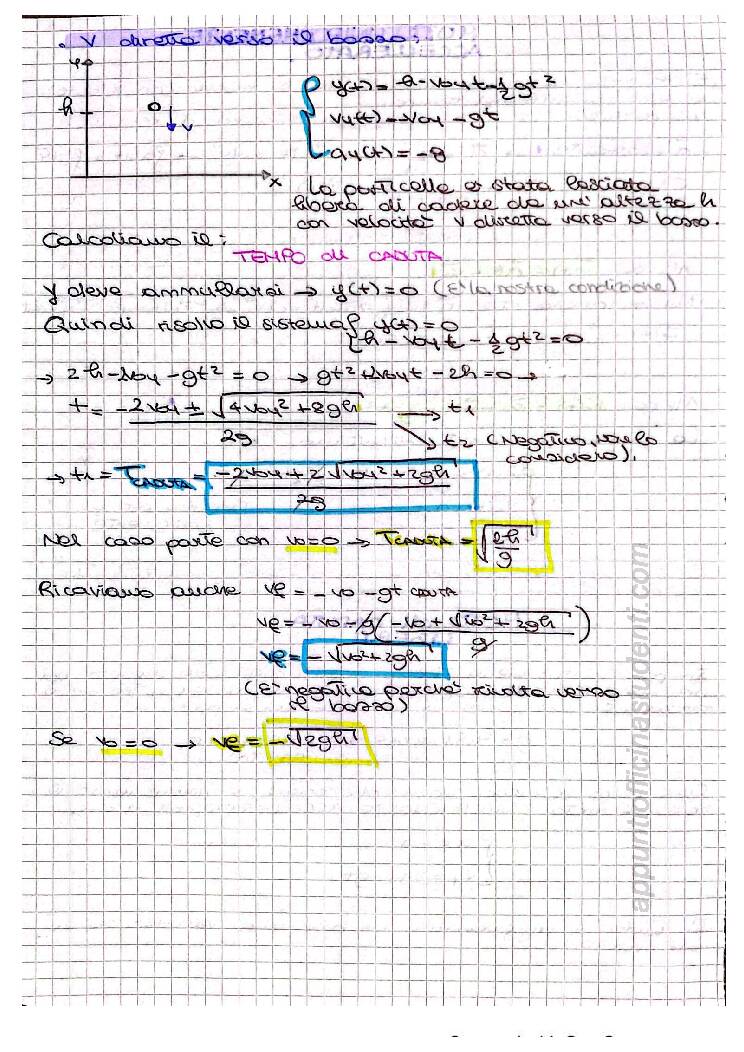 . V diretta verso il basso:
y
h
v
x
y(t) = h - v₀y t - 1/2 gt²
vy(t) = -v₀y - gt
ay(t) = -g
La particella è stata lasciata
libera di cadere da un'altezza h
con velocità v diretta verso il basso.
Calcoliamo il:
TEMPO di CADUTA
Y deve annullarsi → y(t) = 0 (È la nostra condizione)
Quindi risolvo il sistema { y(t) = 0
h - v₀y t - 1/2 gt² = 0
→ 2h - 2v₀y - gt² = 0 → gt² + 2v₀y t - 2h = 0 →
t = (-2v₀y ± √(4v₀y² + 8gh)) / 2g → t₁
→ t₂ (Negativo, non lo
considero).
→ t₁ = TCADUTA = (-2v₀y + 2√(v₀y² + 2gh)) / 2g
Nel caso parte con v₀=0 → TCADUTA = √(2h/g)
Ricaviamo anche vf = - v₀ - gt CADUTA
vf = - v₀ - g((-v₀ + √(v₀² + 2gh)) / g)
vf = - √(v₀² + 2gh)
(È negativa perché rivolta verso
il basso)
Se v₀=0 → vf = -√(2gh)
appuntiofficinastudenti.com